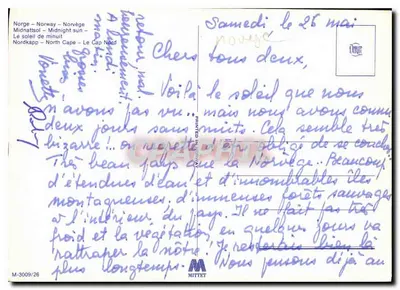 Norge - Norway - Norvège
Midnattsol - Midnight sun -
Le soleil de minuit
Nordkapp - North Cape - Le Cap Nord
Samedi le 26 mai
Chers tous deux,
Voilà le soleil que nous
n'avons pas vu.. mais nous avons connu
deux jours sans nuits. Cela semble très
bizarre... on
obligé de se coucher
Très beau pays que la Norvège.. Beaucoup
d'étendues d'eau et d'innombrables îles
montagneuses, d'immenses forêts sauvages
à l'intérieur du pays. Il ne fait pas très
froid et la végétation en quelques jours va
rattraper la nôtre! Je resterais bien là
plus longtemps. Nous pensons déjà au
retour, mal
heureusement.
A lundi
M-3009/26
MITTET